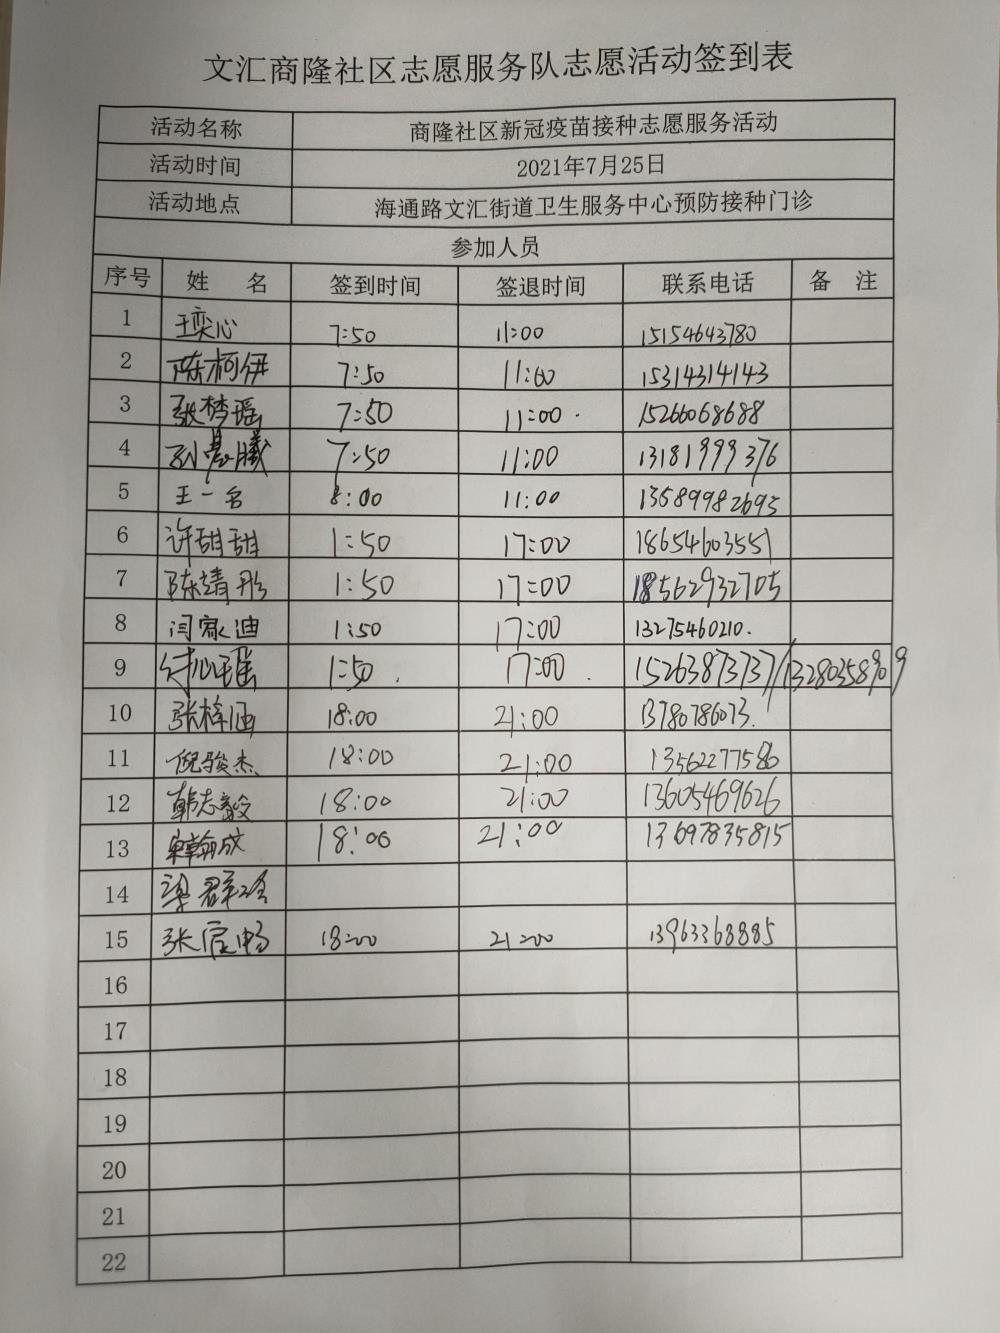 文汇商隆社区志愿服务队志愿活动签到表
活动名称 商隆社区新冠疫苗接种志愿服务活动
活动时间 2021年7月25日
活动地点 海通路文汇街道卫生服务中心预防接种门诊
参加人员
序号 姓 名 签到时间 签退时间 联系电话 备 注
1 王奕心 7:50 11:00 15154643780
2 陈柯伊 7:50 11:00 15314314143
3 张梦瑶 7:50 11:00 15266068688
4 7:50 11:00 13181999376
5 王一名 8:00 11:00 13589982693
6 许甜甜 1:50 17:00 18654603551
7 陈靖彤 1:50 17:00 18562932705
8 闫家迪 1:50 17:00 13275460210.
9 付心瑶 1:50 17:00 15263873737/13280358909
10 张梓涵 18:00 21:00 13780786073.
11 倪骏杰 18:00 21:00 13562277586
12 韩志毅 18:00 21:00 13605469626
13 18:00 21:00 13697835815
14 梁
15 张宸畅 18:00 21:00 13963368885
16
17
18
19
20
21
22